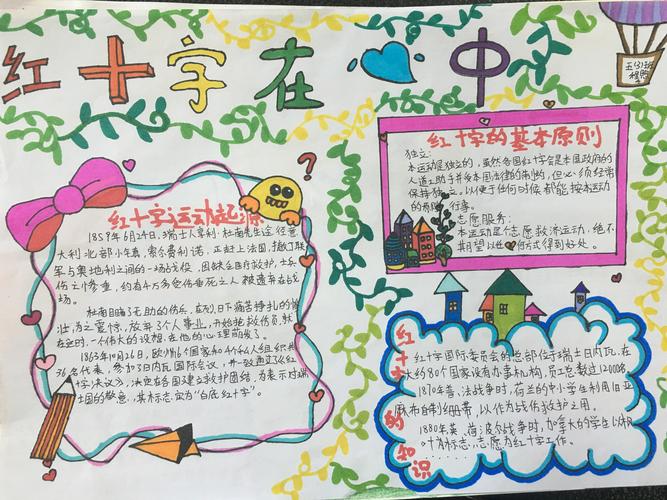 红十字在心中
五(3)班
红十字运动起源
1859年6月24日,瑞士人亨利·杜南先生途经意
大利北部小镇,索尔费利诺,正赶上法国,撒丁联
军与奥地利之间的一场战役,因缺乏医疗救护,士兵
伤亡惨重,约有4万多受伤垂死之人被遗弃在战
场。
杜南目睹了无助的伤兵,在烈日下痛苦挣扎的
壮,为之震惊,放弃了个人事业,开始抢救伤员,就
在这时,一个伟大的设想,在他的心理萌发了。
1863年10月26日,欧洲16个国家和4个私人组织共
36名代表,参加3日内瓦国际会议,并一致通过了《红
十字决议》,决定在各国建立救护团结,为表示对瑞
士国的敬意,其标志定为“白底红十字”。
红十字的基本原则
独立:
本运动是独立的,虽然各国红十字会是本国政府的
人道工助手并受本国法律的制约,但必须经常
保持独立,以便于任何时候都能按本运动
的 行事。
志愿服务:
本运动是个志愿救济运动,绝不
期望以任何方式得到好处。
红十字的知识
红十字国际委员会的总部位于瑞士日内瓦,在
大约80个国家设有办事机构,员工总数过12000名。
1870年普、法战争时,荷兰的中小学生利用旧亚
麻布自制绷带,以作为战伤救护之用。
1880年英、荷波尔战争时,加拿大的学生以
十为标志,志愿为红十字工作。